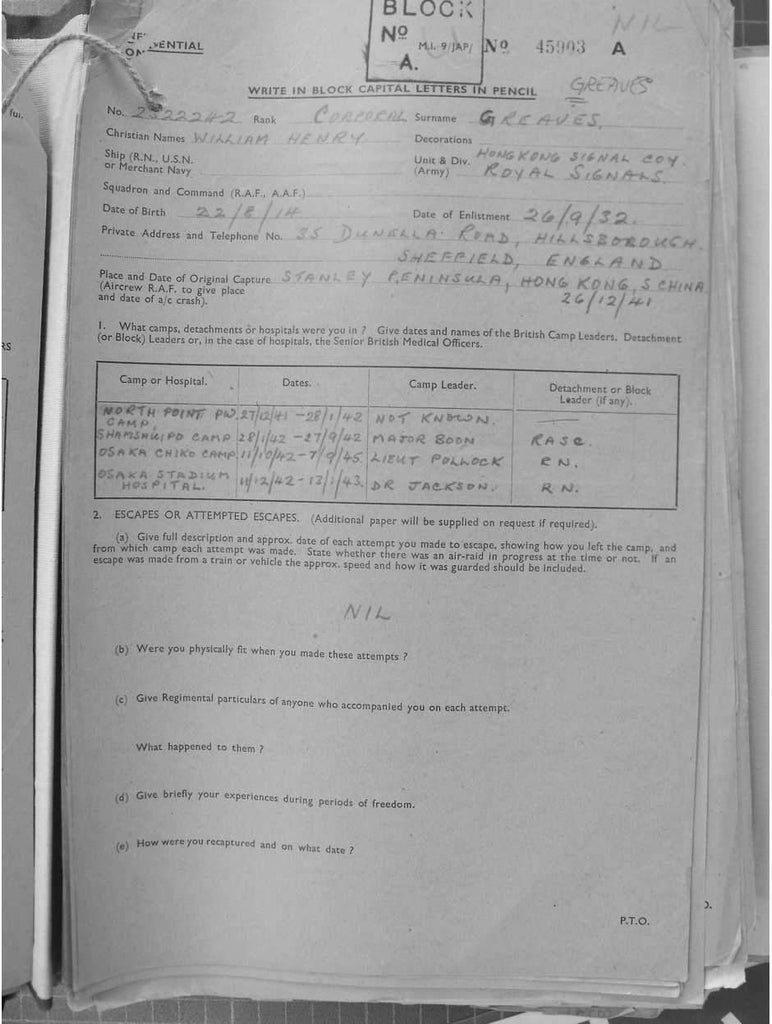 BLOCK
Nº
A.
M.I. 9/JAP/
Nº 45903 A
NIL
ENTIAL
WRITE IN BLOCK CAPITAL LETTERS IN PENCIL
GREAVES
No. 2322242 Rank CORPORAL Surname GREAVES.
Christian Names WILLIAM HENRY Decorations
Ship (R.N., U.S.N. or Merchant Navy
Unit & Div. (Army) HONGKONG SIGNAL COY. ROYAL SIGNALS.
Squadron and Command (R.A.F., A.A.F.)
Date of Birth 22/8/14 Date of Enlistment 26/9/32.
Private Address and Telephone No. 35 DUNELLA ROAD, HILLSBOROUGH.
SHEFFIELD, ENGLAND
Place and Date of Original Capture STANLEY PENINSULA, HONG KONG, S CHINA
(Aircrew R.A.F. to give place
and date of a/c crash).
26/12/41
1. What camps, detachments or hospitals were you in ? Give dates and names of the British Camp Leaders, Detachment
(or Block) Leaders or, in the case of hospitals, the Senior British Medical Officers.
Camp or Hospital. Dates. Camp Leader. Detachment or Block Leader (if any).
NORTH POINT PW. CAMP. 27/12/41 - 28/1/42 NOT KNOWN.
SHAMSHUIPO CAMP 28/1/42 - 27/9/42 MAJOR BOON RASC.
OSAKA CHIKO CAMP. 11/10/42 - 7/9/45. LIEUT POLLOCK RN.
OSAKA STADIUM HOSPITAL. 11/12/42 - 13/1/43. DR JACKSON. R.N.
2. ESCAPES OR ATTEMPTED ESCAPES. (Additional paper will be supplied on request if required).
(a) Give full description and approx. date of each attempt you made to escape, showing how you left the camp, and
from which camp each attempt was made. State whether there was an air-raid in progress at the time or not. If an
escape was made from a train or vehicle the approx. speed and how it was guarded should be included.
NIL
(b) Were you physically fit when you made these attempts ?
(c) Give Regimental particulars of anyone who accompanied you on each attempt.
What happened to them ?
(d) Give briefly your experiences during periods of freedom.
(e) How were you recaptured and on what date ?
P.T.O.